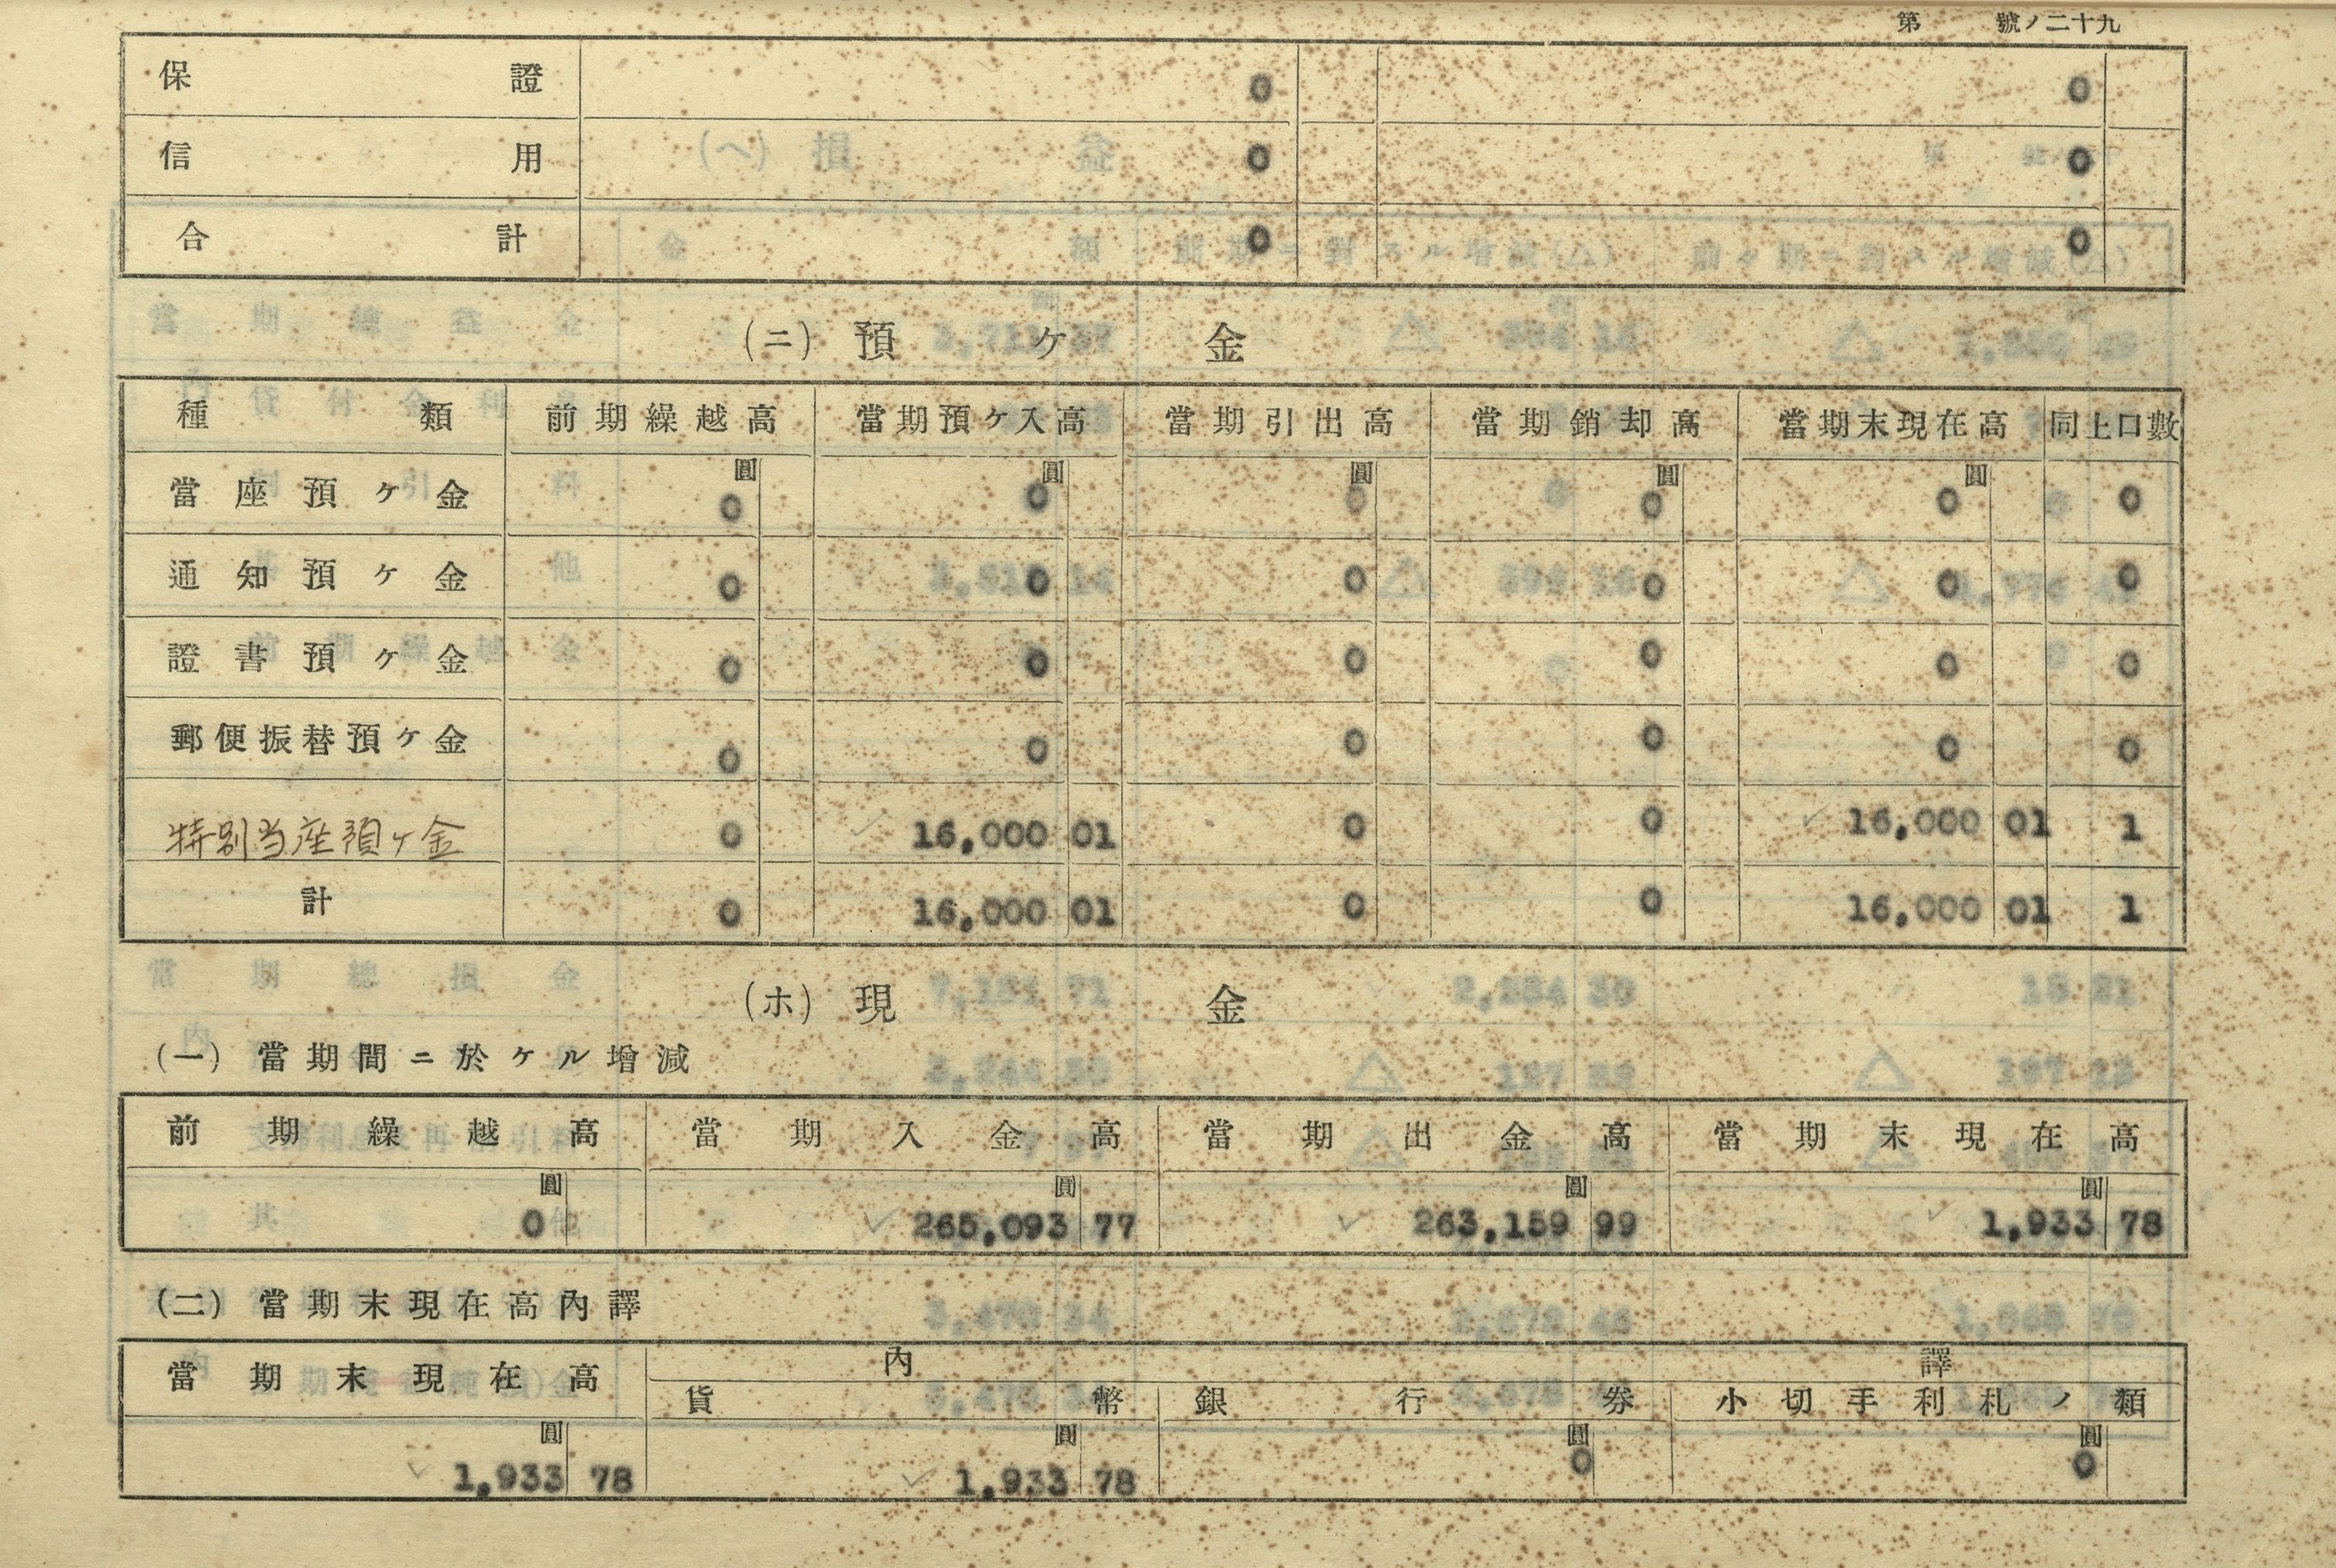 第 號ノ二十九
保證 0 0
信用 0 0
合計 0 0
(ニ) 預ケ金
種類 前期繰越高 當期預ケ入高 當期引出高 當期銷却高 當期末現在高 同上口數
圓 圓 圓 圓 圓
當座預ケ金 0 0 0 0 0 0
通知預ケ金 0 0 0 0 0 0
證書預ケ金 0 0 0 0 0 0
郵便振替預ケ金 0 0 0 0 0 0
特別当座預ケ金 0 16,000 01 0 0 16,000 01 1
計 0 16,000 01 0 0 16,000 01 1
(ホ) 現金
(一) 當期間ニ於ケル增減
前期繰越高 當期入金高 當期出金高 當期末現在高
圓 圓 圓 圓
0 265,093 77 263,159 99 1,933 78
(二) 當期末現在高內譯
當期末現在高 內譯
貨幣 銀行券 小切手利札ノ類
圓 圓 圓 圓
1,933 78 1,933 78 0 0